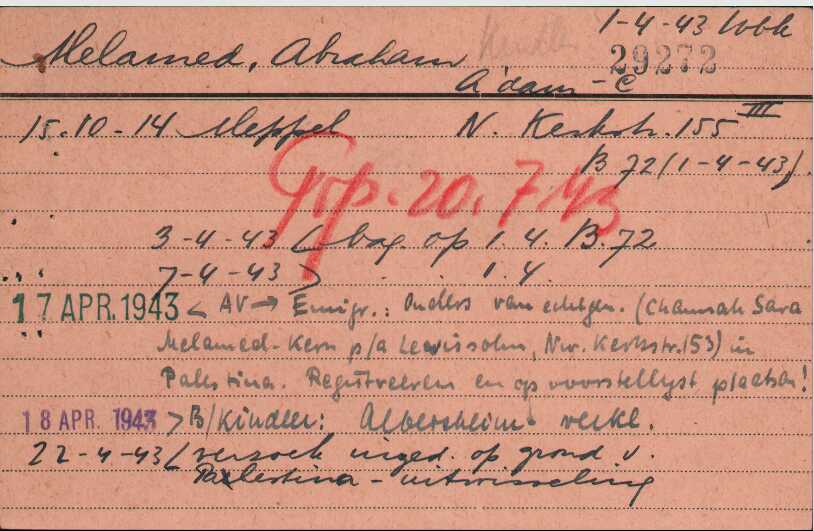 1-4-43 Wbk
Melamed, Abraham Kindler 29272
A'dam-C
15-10-14 Meppel N. Kerkstr. 155 III
B 72 (1-4-43).
Grp. 20.7.43
3-4-43 ( bag. op 1.4. B. 72
7-4-43 > . . 1.4.
17 APR. 1943 < AV → Emigr.: Ouders van echtgen. (Channah Sara
Melamed-Kern p/a Lewissohn, Nw. Kerkstr. 153) in
Palestina. Registreeren en op voorstellijst plaatsen!
18 APR. 1943 > B/Kindler: Albersheim- verkl.
22-4-43 ( verzoek inged. op grond v.
Palestina - uitwisseling